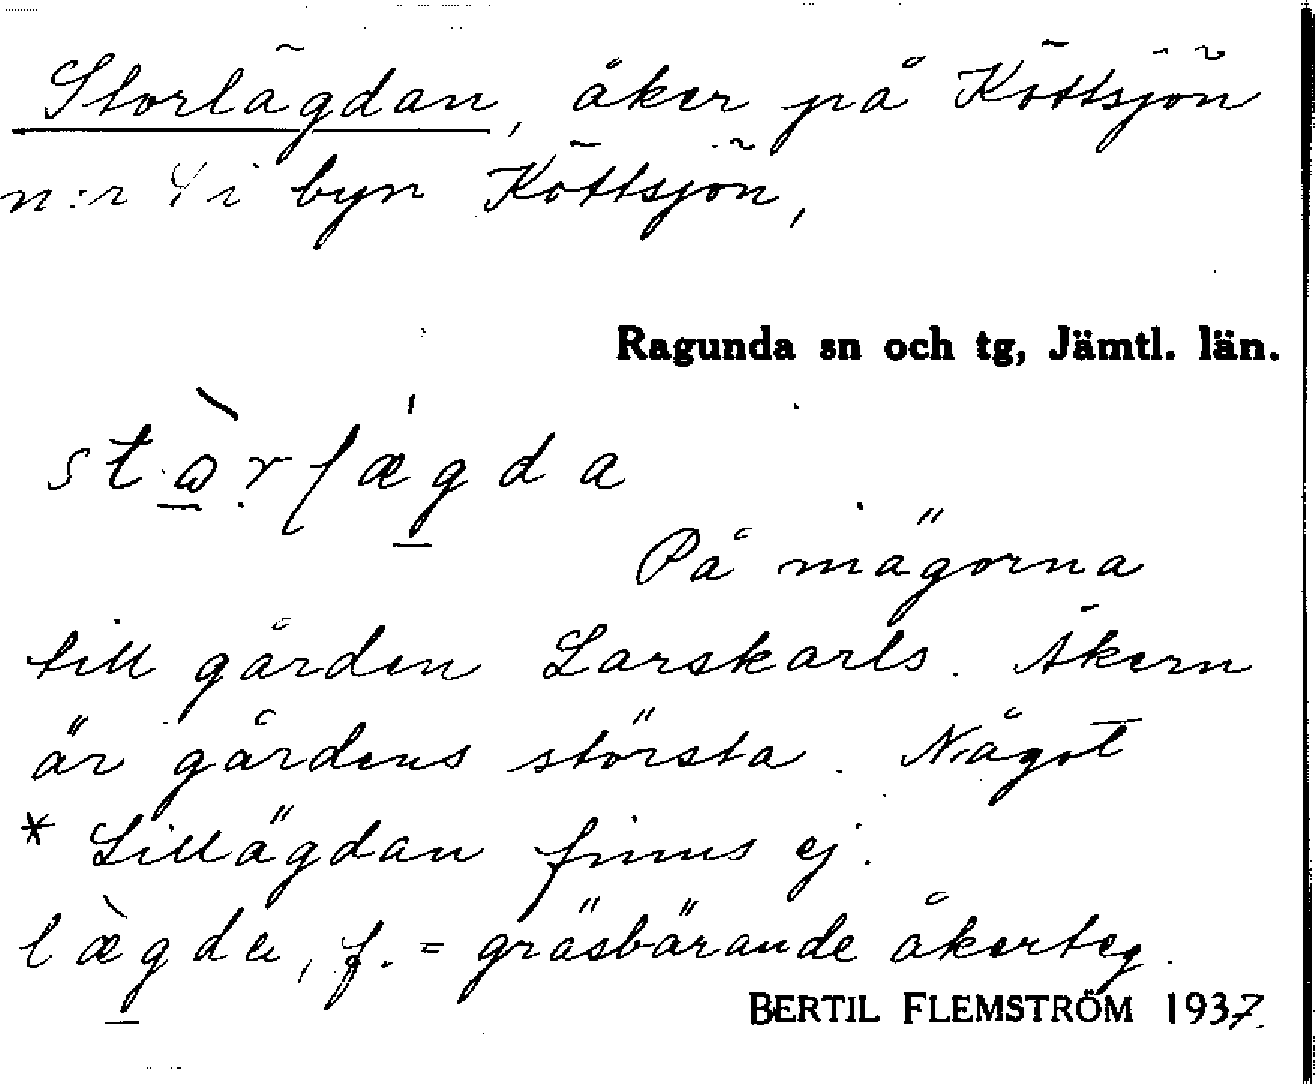 Storlägdan, åker på Köttsjön
n:r 4 i byn Köttsjön,
Ragunda sn och tg, Jämtl. län.
På mägorna
till gården Larskarls. Åkern
är gårdens största. Något
* Lillägdan finns ej.
lægda, f. = gräsbärande åkerteg.
BERTIL FLEMSTRÖM 1937.